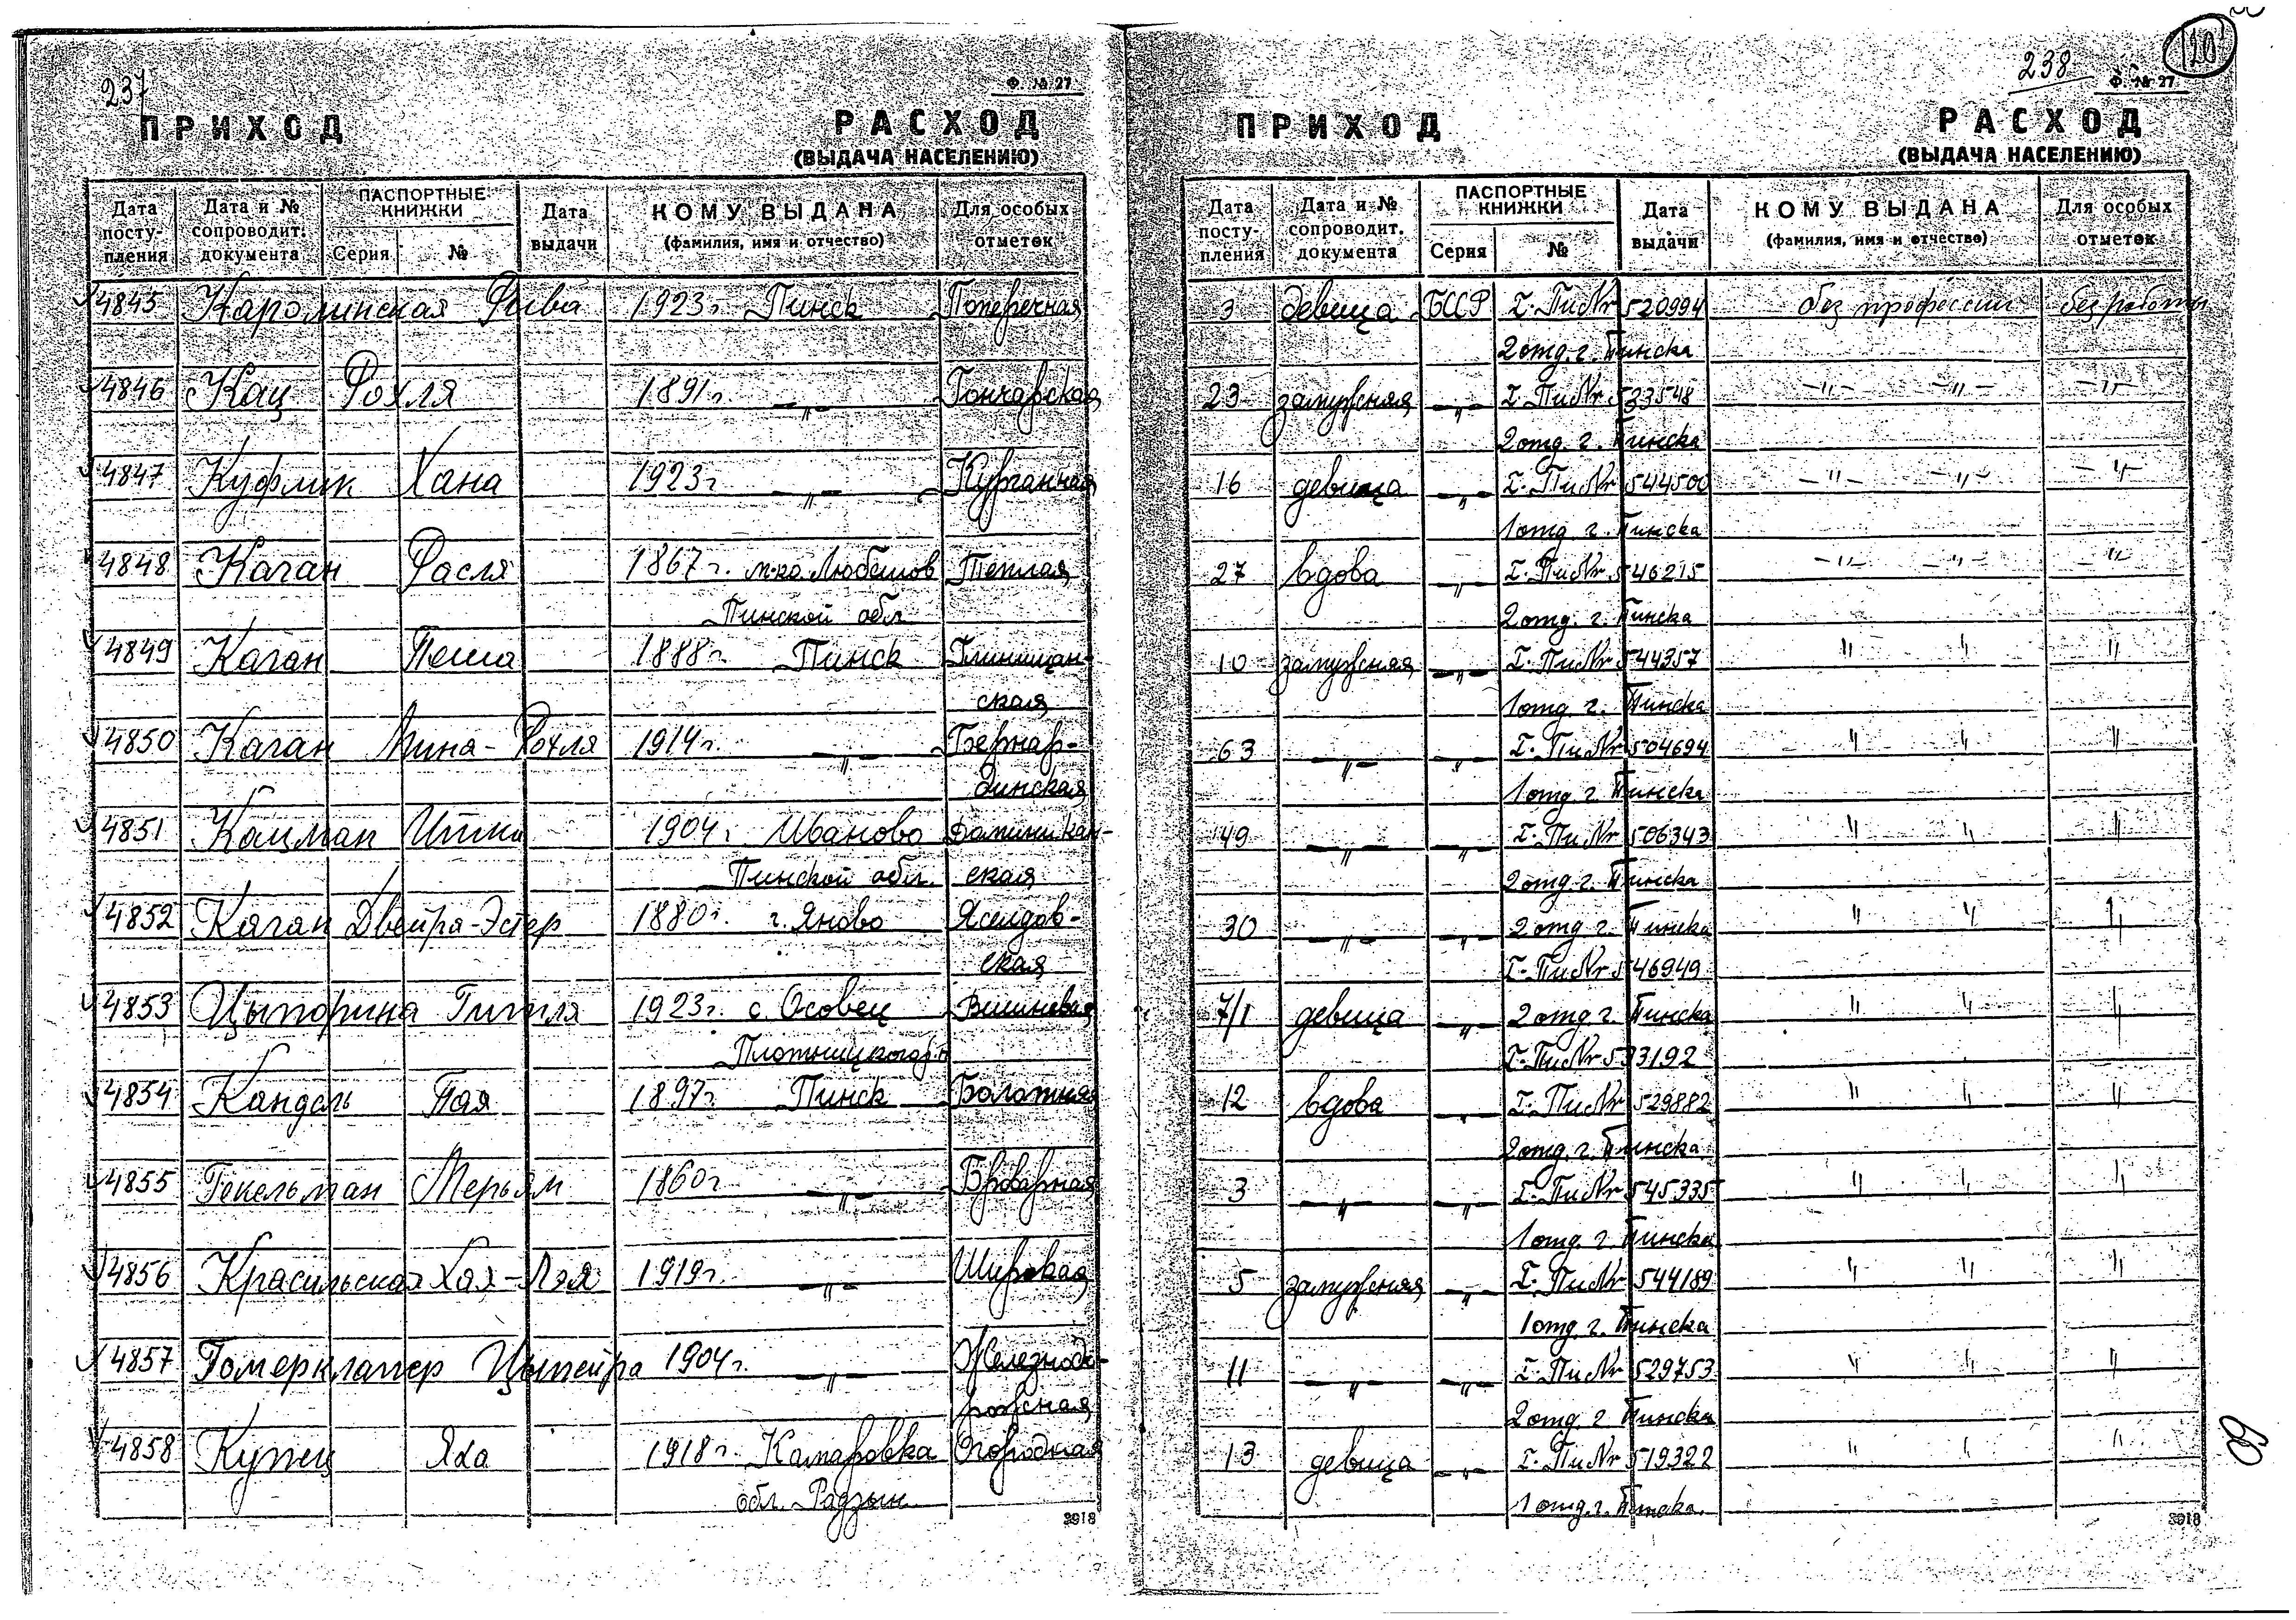 237
Ф. № 27
ПРИХОД
РАСХОД
(ВЫДАЧА НАСЕЛЕНИЮ)
Дата посту-пления
Дата и № сопроводит. документа
ПАСПОРТНЫЕ КНИЖКИ
Серия
№
Дата выдачи
КОМУ ВЫДАНА
(фамилия, имя и отчество)
Для особых отметок
4845 Каролинская Фива 1923г. Пинск Поперечная
4846 Кац Рохля 1891г. —"— Гончарская
4847 Куфлик Хана 1923г —"— Курганная
4848 Каган Расля 1867г. м-ко Любешов Теплая
Пинской обл.
4849 Каган Пеша 1888г. Пинск
ская
4850 Каган Мина-Рохля 1914г. —"— Бернар-
динская
4851 Кацман Итка 1904г. Иваново Доминикан-
Пинской обл. ская
4852 Каган Двейра-Эстер 1880г. г. Яново Ясельдов-
ская
4853 Цыпорина Гитля 1923г. с. Осовец Вишневая
4854 Кандель Пая 1897г. Пинск Болотная
4855 Гекельман Мерьям 1860г —"— Броварная
4856 Красильская Хая-Лэя 1919г. —"— Широкая
4857 Гомерклапер Цыпейра 1904г. —"— Железнодо-
рожная
4858 Купец Яха 1918г. Камаровка Огородная
обл. Радзын
3918
120
238
Ф. № 27
ПРИХОД
РАСХОД
(ВЫДАЧА НАСЕЛЕНИЮ)
Дата посту-пления
Дата и № сопроводит. документа
ПАСПОРТНЫЕ КНИЖКИ
Серия
№
Дата выдачи
КОМУ ВЫДАНА
(фамилия, имя и отчество)
Для особых отметок
3 девица БССР I-Пи Nr 520994 без профессии без работы
2 отд. г. Пинска
23 замужняя —"— I-Пи Nr 533548 —"— —"— —"—
2 отд. г. Пинска
16 девица —"— I-Пи Nr 544500 —"— —"— —"—
1 отд. г. Пинска
27 вдова —"— I-Пи Nr 546215 —"— —"— —"—
2 отд. г. Пинска
10 замужняя —"— I-Пи Nr 544357 " " "
1 отд. г. Пинска
63 —"— —"— I-Пи Nr 504694 " " "
1 отд. г. Пинска
49 —"— —"— I-Пи Nr 506343 " " "
2 отд. г. Пинска
30 —"— —"— 2 отд. г. Пинска " " "
I-Пи Nr 546949
7/1 девица —"— 2 отд. г. Пинска " " "
I-Пи Nr 533192
12 вдова —"— I-Пи Nr 529882 " " "
2 отд. г. Пинска
3 —"— —"— I-Пи Nr 545335 " " "
1 отд. г. Пинска
5 замужняя —"— I-Пи Nr 544189 " " "
1 отд. г. Пинска
11 —"— —"— I-Пи Nr 529753 " " "
2 отд. г. Пинска
13 девица —"— I-Пи Nr 519322 " " "
1 отд. г. Пинска
3918